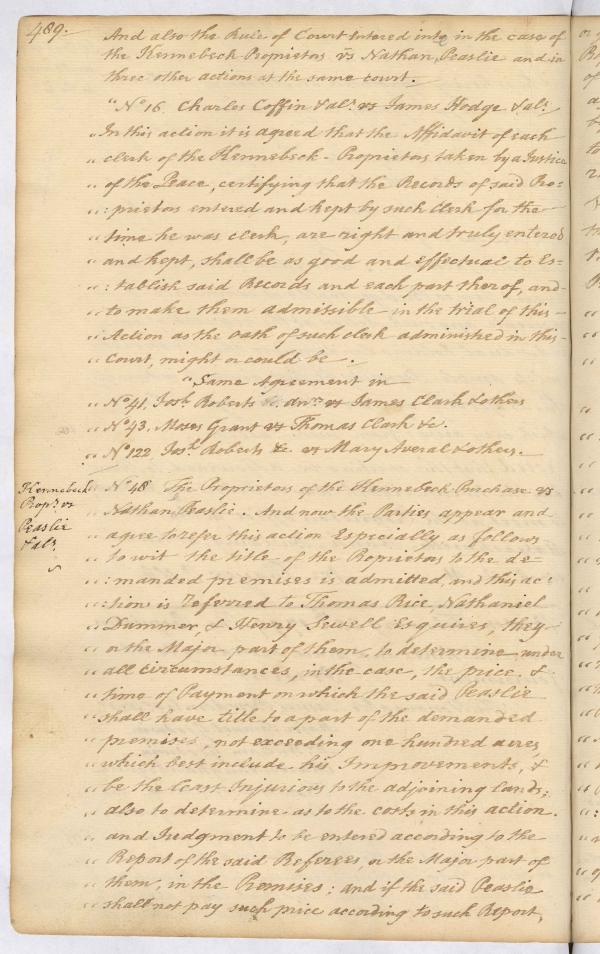 489.
And also the Rule of Court Entered into in the case of
the Kennebeck Proprietors vs Nathan Peaslie and in
three other actions at the same court.
"No 16. Charles Coffin & als. vs James Hodge & als.
"In this action it is agreed that the Affidavit of each
"clerk of the Kennebeck-Proprietors taken by a Justice
"of the Peace, certifying that the Records of said Pro=
":prietors entered and kept by such Clerk for the
"time he was clerk, are right and truly entered
"and kept, shall be as good and effectual to Es=
":tablish said Records and each part therof, and
"to make them admissible in the trial of this
"Action as the oath of such clerk administred in this
"Court, might or could be.
"Same Agreement in
"No 41. Josh. Roberts vs James Clark & others
"No 43. Moses Grant vs Thomas Clark &c.
"No 122 Josh. Roberts &c. vs Mary Averal & others.
Kennebeck
Propr. vs
Peaslie
& als.
"No 48 The Proprietors of the Kennebeck Purchase vs
"Nathan Peaslie. And now the Parties appear and
"agree to refer this action Especially as follows
"to wit the title of the Proprietors to the de=
":manded premises is admitted, and this ac:
":tion is referred to Thomas Rice, Nathaniel
"Dummer, & Henry Sewell Esquires, they
"or the Major part of them, to determine under
"all circumstances, in the case, the price &
"time of Payment on which the said Peaslie
"shall have title to a part of the demanded
"premises, not exceeding one hundred acres,
"which best include his Improvements, &
"be the least Injurious to the adjoining lands;
"also to determine as to the costs in this action.
"and Judgment to be entered according to the
"Report of the said Referees, or the Major part of
"them, in the Premises; and if the said Peaslie
"shall not pay such price according to such Report,